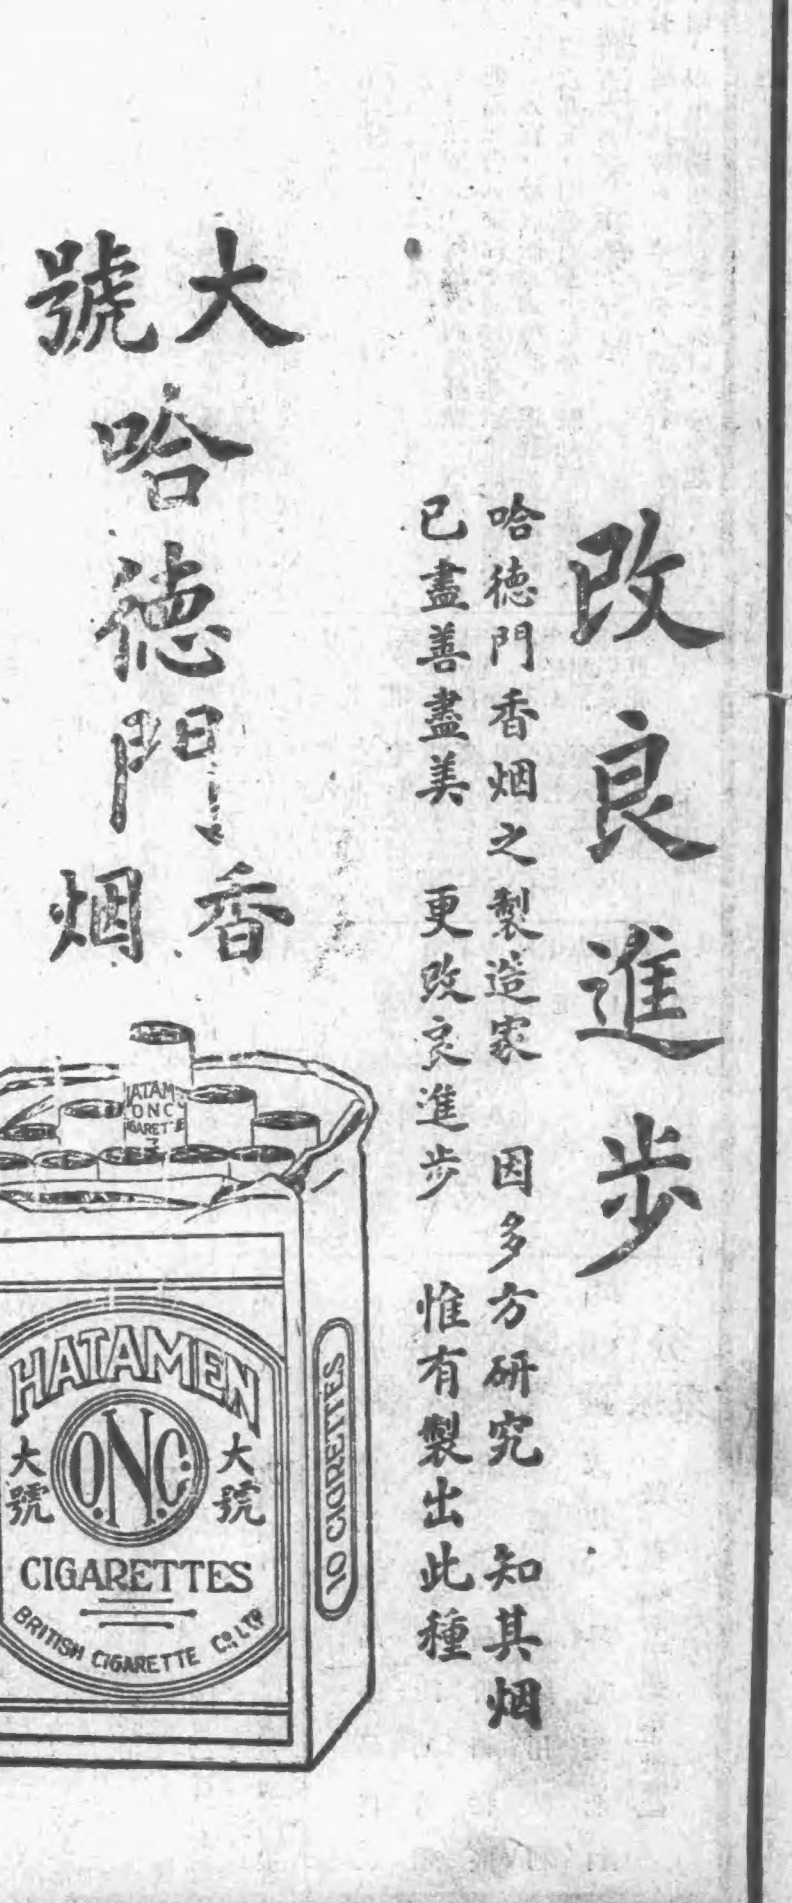 改良進步
哈德門香烟之製造家 因多方研究 知其烟
已盡善盡美 更改良進步 惟有製出此種
大號
哈德門
香烟
HATAM
ONC
IGARETTE
HATAMEN
大號 O.N.C. 大號
CIGARETTES
BRITISH CIGARETTE CO. LTD
10 CIGARETTES